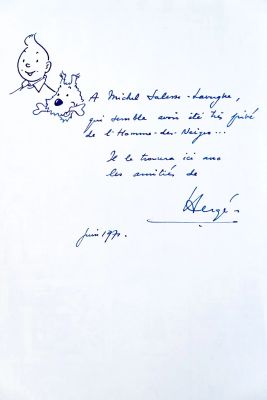 A Michel Salesse-Lavergne,
qui semble avoir été très privé
de l'Homme-des-Neiges...
Il le trouvera ici avec
les amitiés de
Hergé
Juin 1970.